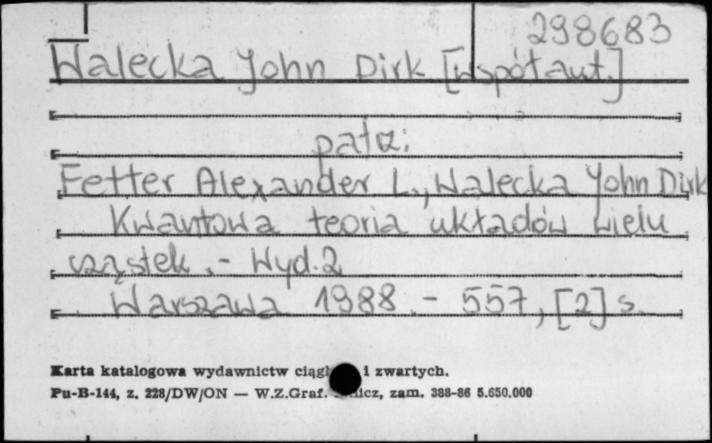 298683
Walecka John Dirk [współaut.]
patrz:
Fetter Alexander L., Walecka John Dirk
Kwantowa teoria układów wielu
cząstek. - Wyd. 2
Warszawa 1988. - 557, [2] s.
Karta katalogowa wydawnictw i zwartych.
Pu-B-144, z. 228/DW/ON — W.Z.Graf. zam. 388-86 5.650.000